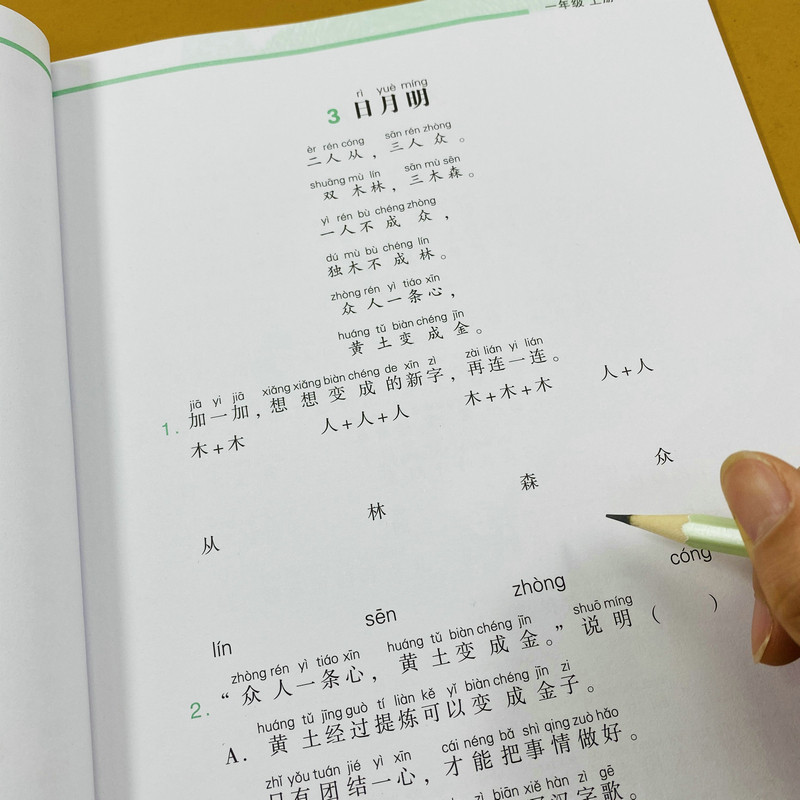 一年级 上册
rì yuè míng
3 日月明
èr rén cóng sān rén zhòng
二人从，三人众。
shuāng mù lín sān mù sēn
双木林，三木森。
yì rén bù chéng zhòng
一人不成众，
dú mù bù chéng lín
独木不成林。
zhòng rén yì tiáo xīn
众人一条心，
huáng tǔ biàn chéng jīn
黄土变成金。
jiā yi jiā xiǎng xiǎng biàn chéng de xīn zì zài lián yi lián
1. 加一加，想想变成的新字，再连一连。
木+木 人+人+人 木+木+木 人+人
从 林 森 众
lín sēn zhòng cóng
zhòng rén yì tiáo xīn huáng tǔ biàn chéng jīn shuō míng
2. “众人一条心，黄土变成金。”说明（ ）
huáng tǔ jīng guò tí liàn kě yǐ biàn chéng jīn zi
A. 黄土经过提炼可以变成金子。
zhǐ yǒu tuán jié yì xīn cái néng bǎ shì qing zuò hǎo
只有团结一心，才能把事情做好。
biān xiě hàn zì gē
写汉字歌。